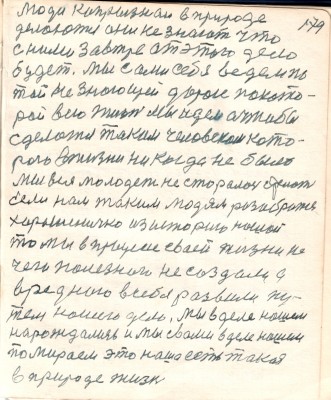 179
люди капризная в природе
делаюта они не знают что
с ними завтра от этого дело
будет. мы сами себя ведем по
той не знающей дороге по кото-
рой всю жизн мы идем а чтобы
сделатся таким человеком кото-
рого в жизни никогда не было
мы вся молодеж не старались
если нам таким людям разобратся
хорошенично в историю нашой
то мы в прошлое своей жизни не
чего полезного не создали а
вредного в себя развили пу-
тем нашего дело, мы в деле нашем
нарождались и мы с вами в деле нашим
помираем это наша есть такая
в природе жизн